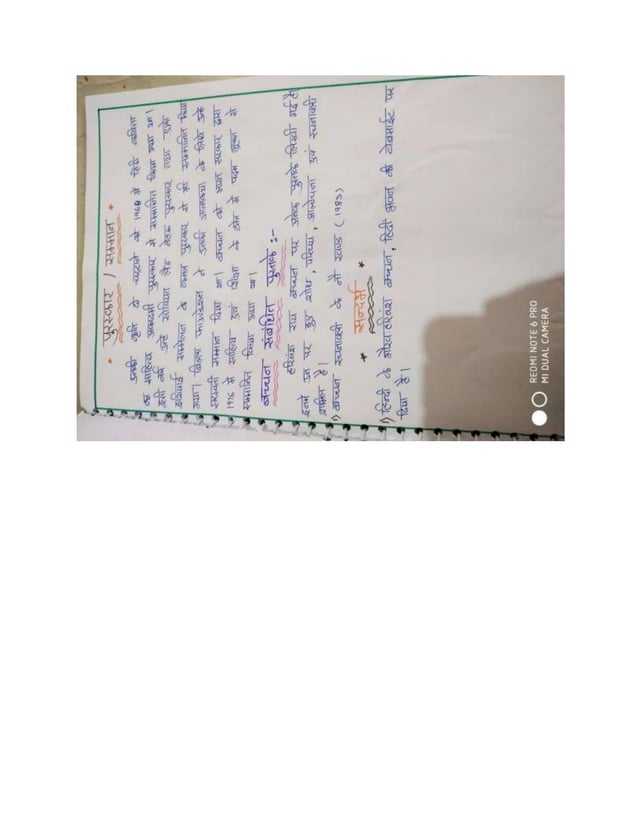 * पुरस्कार / सम्मान *
उनकी कृति दो चट्टाने को 1968 में हिंदी कविता
का साहित्य अकादमी पुरस्कार से सम्मानित किया गया था।
इसी वर्ष उन्हें सोवियत लैंड नेहरू पुरस्कार तथा एफ्रो
एशियाई सम्मेलन के कमल पुरस्कार से भी सम्मानित किया
गया। बिड़ला फाउण्डेशन ने उनकी आत्मकथा के लिये उन्हें
सरस्वती सम्मान दिया था। बच्चन को भारत सरकार द्वारा
1976 में साहित्य एवं शिक्षा के क्षेत्र में पद्म भूषण से
सम्मानित किया गया था।
बच्चन संबंधित पुस्तकें :-
हरिवंश राय बच्चन पर अनेक पुस्तकें लिखी गई हैं
इनमें उन पर हुए शोध, आलोचना एवं रचनावली
शामिल है।
1) बच्चन रचनावली के नौ खण्ड (1983)
* सन्दर्भ *
1) हिन्दी के हरिवंश बच्चन, हिंदी भवन की वेबसाईट पर
दिया है।
REDMI NOTE 6 PRO
MI DUAL CAMERA